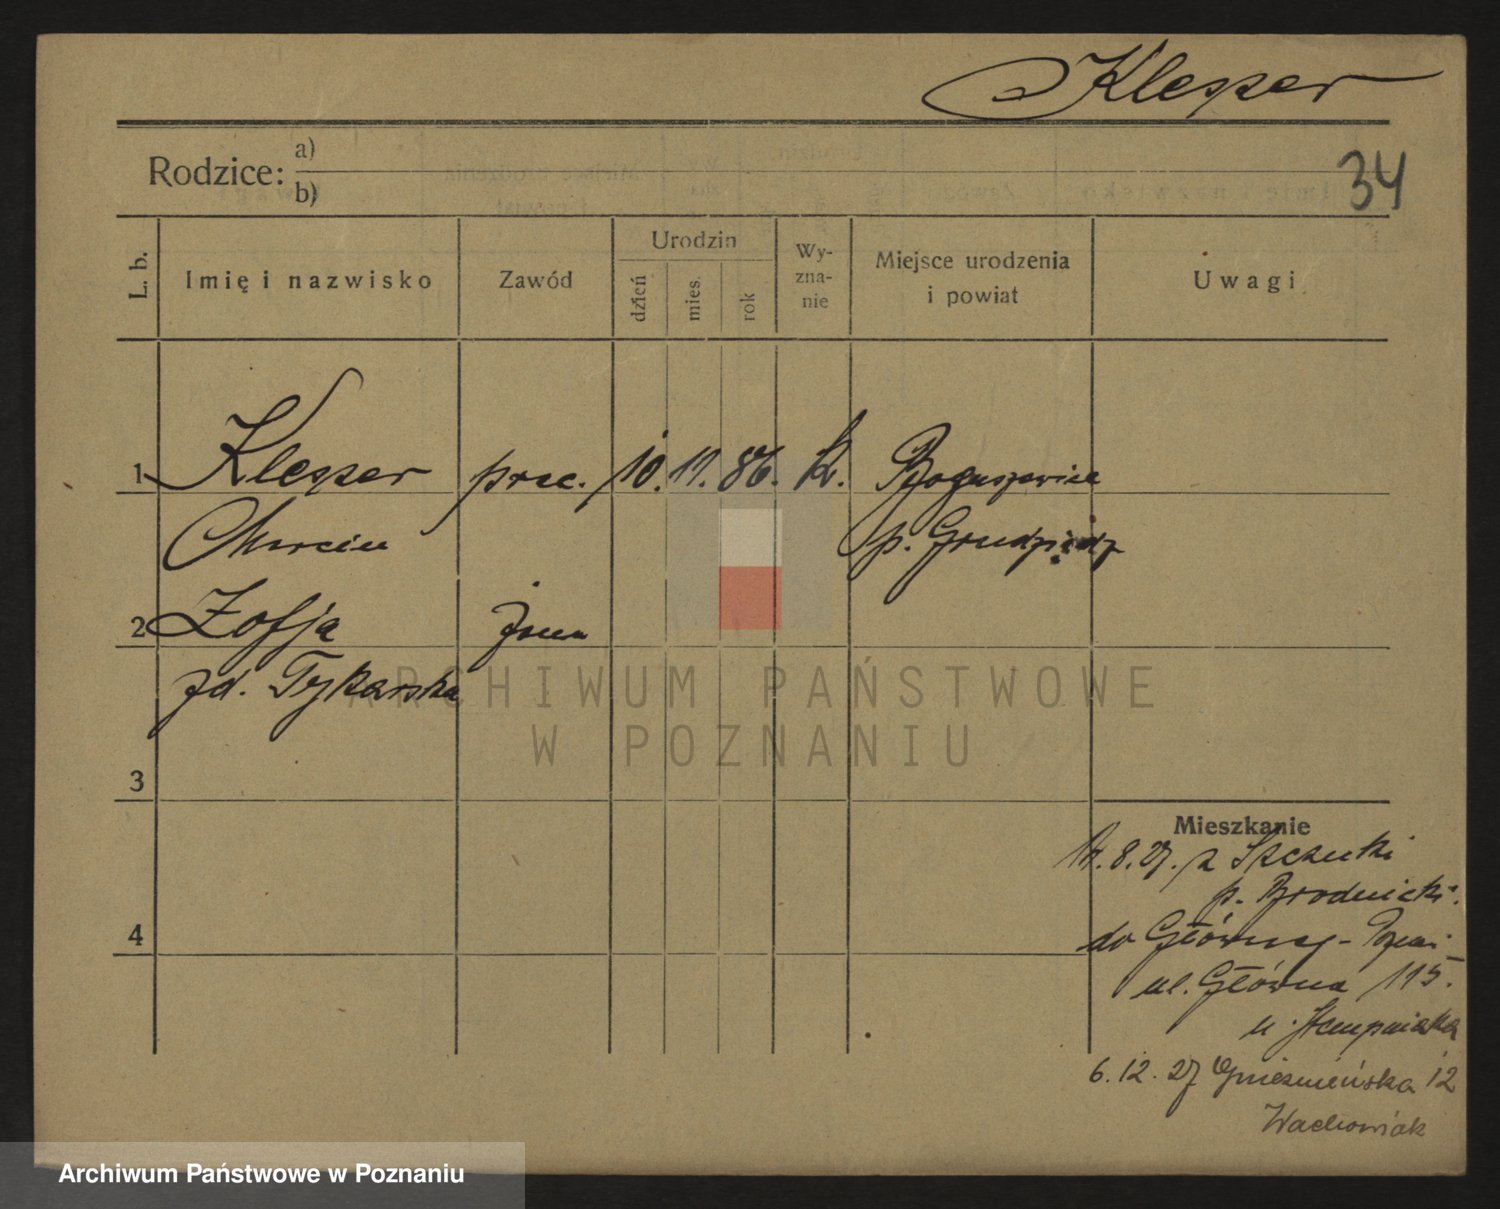 Klesper
Rodzice: a)
b)
34
L. b.
Imię i nazwisko
Zawód
Urodzin
dzień
mies.
rok
Wy-
zna-
nie
Miejsce urodzenia
i powiat
Uwagi
1 Klesper prac. 10. 11. 86. k. Boguszewice
Marcin p. Grudziądz
2 Zofja żona
zd. Tykarska
ARCHIWUM PAŃSTWOWE
W POZNANIU
3
Mieszkanie
8.27. z Szczuki
p. Brodnicki.
4
do Główny - Pozn.
ul. Główna 115.
u. Stempniaka
6.12.27 Gnieźnieńska 12
Wachowiak
Archiwum Państwowe w Poznaniu